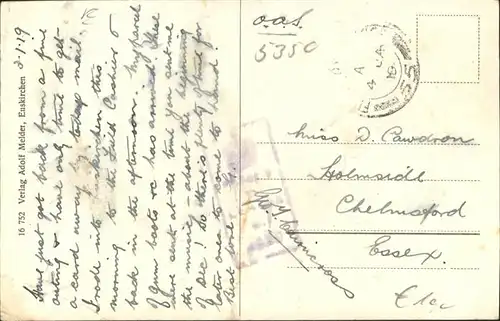 3/1/19
Have just got back from a fine
outing & have only time to get
a card away by todays mail.
I rode into Euskirchen this
morning to the Field Cashier &
back in the afternoon. My parcel
of Gum boots &c has arrived. These
were sent at the time you sent me
the music – about the beginning
of Dec! So there's plenty of time for
later ones to come to hand!
Best love.
16 752 Verlag Adolf Melder, Euskirchen
o.a.s.
5350
4 JA
19
55
Miss D. Cawdron
Holmsidl
Chelmsford
Essex.